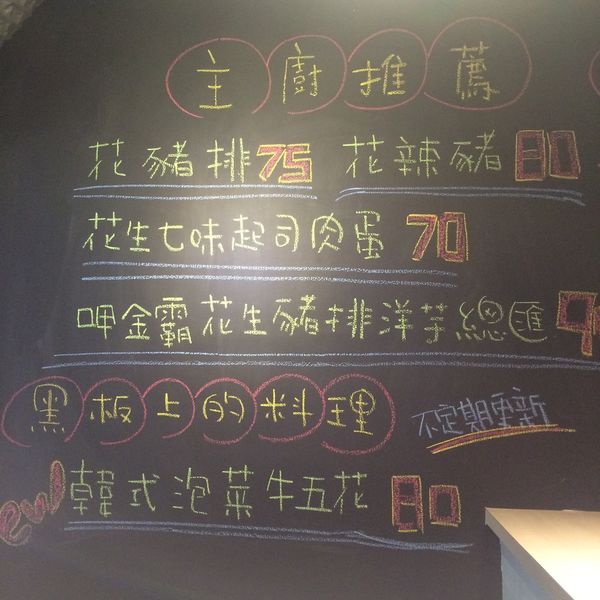 主廚推薦
花豬排75 花辣豬80
花生七味起司肉蛋70
呷金霸花生豬排洋芋總匯
黑板上的料理 不定期更新
韓式泡菜牛五花80